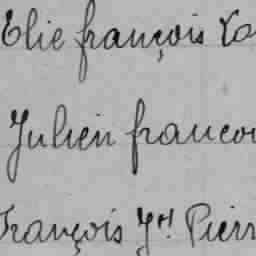 Elie françois La
Julien francoi
François Jh Pierr